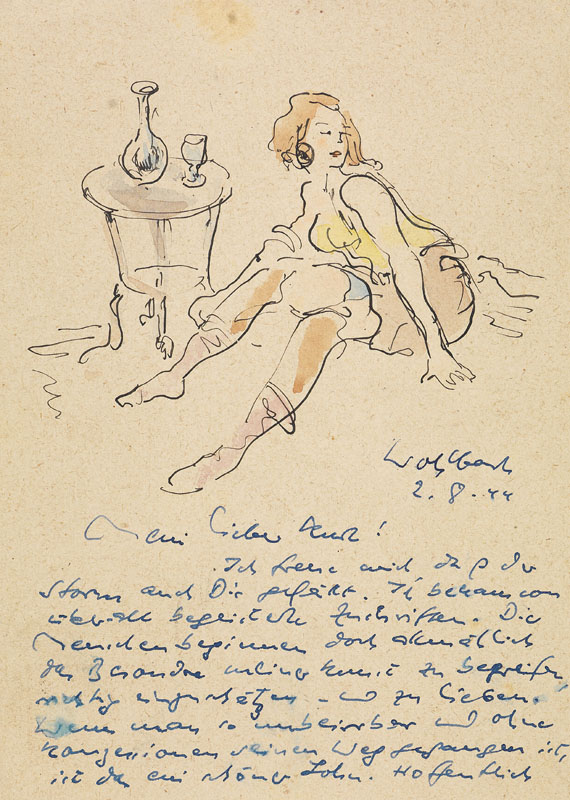 Wolfbach
2.8.44
Mein lieber Kurt!
Ich freue mich daß der
Storm auch Dir gefällt. Ich bekam von
überall begeisterte Zuschriften. Die
Menschen beginnen doch allmählich
das Besondre meiner Kunst zu begreifen,
richtig einzuschätzen – und zu lieben.
Wenn man so unbeirrbar und ohne
Konzessionen seinen Weg gegangen ist,
ist das ein schöner Lohn. Hoffentlich